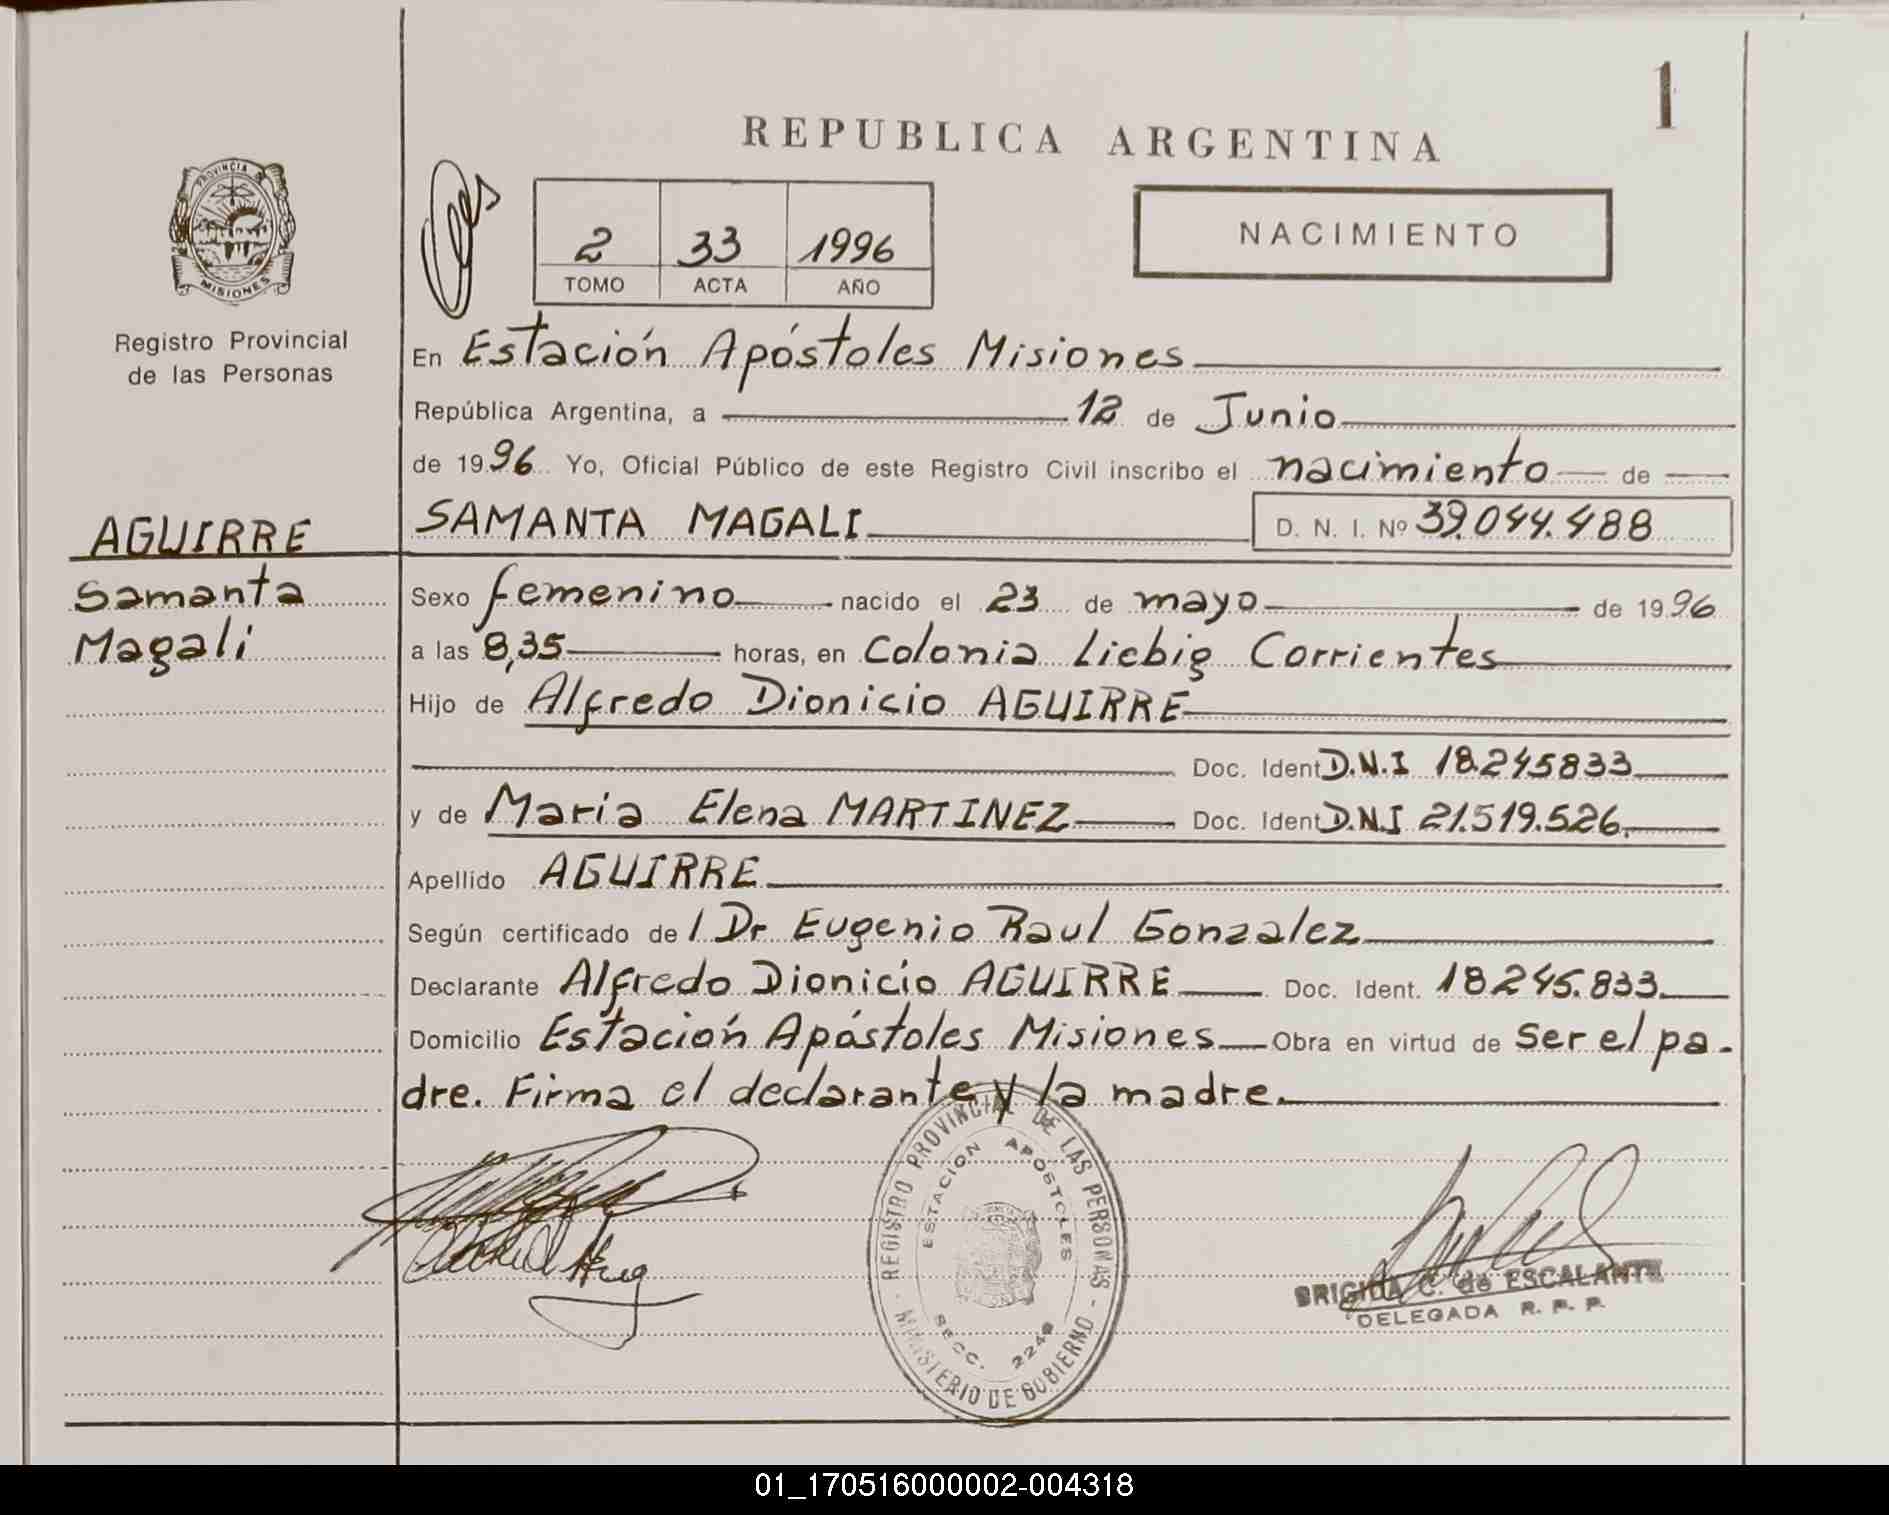 1
REPUBLICA ARGENTINA
PROVINCIA DE
MISIONES
Registro Provincial
de las Personas
2 33 1996
TOMO ACTA AÑO
NACIMIENTO
En Estación Apóstoles Misiones
República Argentina, a 12 de Junio
de 1996 Yo, Oficial Público de este Registro Civil inscribo el nacimiento de
AGUIRRE
Samanta
Magali
SAMANTA MAGALI D. N. I. Nº 39.044.488
Sexo femenino nacido el 23 de mayo de 1996
a las 8,35 horas, en Colonia Liebig Corrientes
Hijo de Alfredo Dionicio AGUIRRE
Doc. Ident D.N.I 18.245833
y de Maria Elena MARTINEZ Doc. Ident D.N.I 21.519.526.
Apellido AGUIRRE
Según certificado de l Dr Eugenio Raul Gonzalez
Declarante Alfredo Dionicio AGUIRRE Doc. Ident. 18.245.833
Domicilio Estación Apóstoles Misiones Obra en virtud de ser el pa-
dre. Firma el declarante y la madre.
REGISTRO PROVINCIAL DE LAS PERSONAS - MINISTERIO DE GOBIERNO -
ESTACION APOSTOLES
SECC. 2240
BRIGIDA C. de ESCALANTE
DELEGADA R. P. P.
01_170516000002-004318